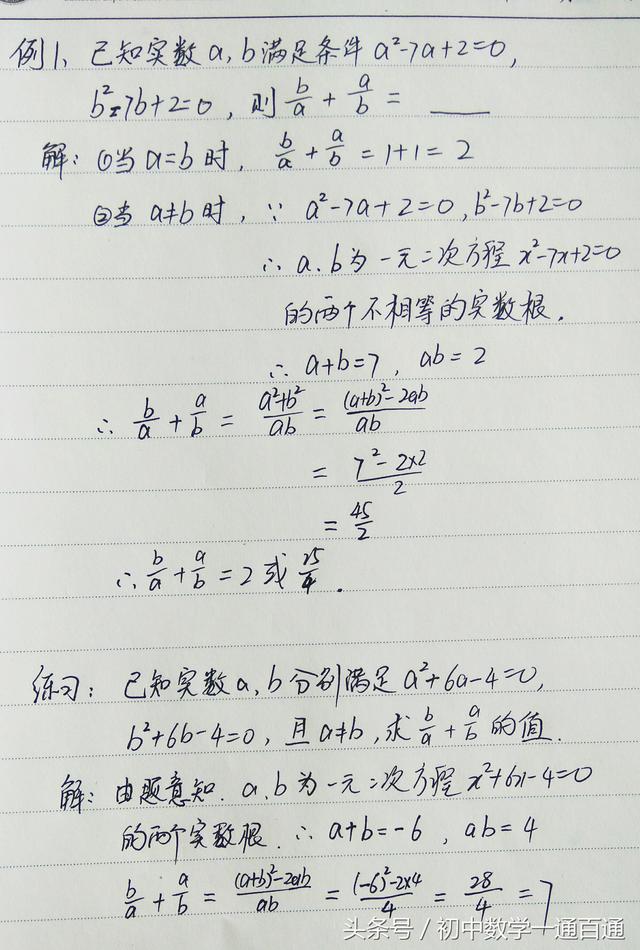 例1、已知实数a,b满足条件 a²-7a+2=0,
b²-7b+2=0,则 b/a + a/b = ____
解:①当a=b时, b/a + a/b = 1+1 = 2
②当 a≠b时,∵ a²-7a+2=0,b²-7b+2=0
∴ a、b为一元二次方程 x²-7x+2=0
的两个不相等的实数根.
∴ a+b=7, ab=2
∴ b/a + a/b = (a²+b²)/ab = ((a+b)²-2ab)/ab
= (7²-2×2)/2
= 45/2
∴ b/a + a/b = 2 或 25/4.
练习:已知实数a,b分别满足 a²+6a-4=0,
b²+6b-4=0,且a≠b,求 b/a + a/b 的值.
解:由题意知.a、b为一元二次方程 x²+6x-4=0
的两个实数根.∴ a+b=-6, ab=4
b/a + a/b = ((a+b)²-2ab)/ab = ((-6)²-2×4)/4 = 28/4 = 7
头条号 / 初中数学一通百通